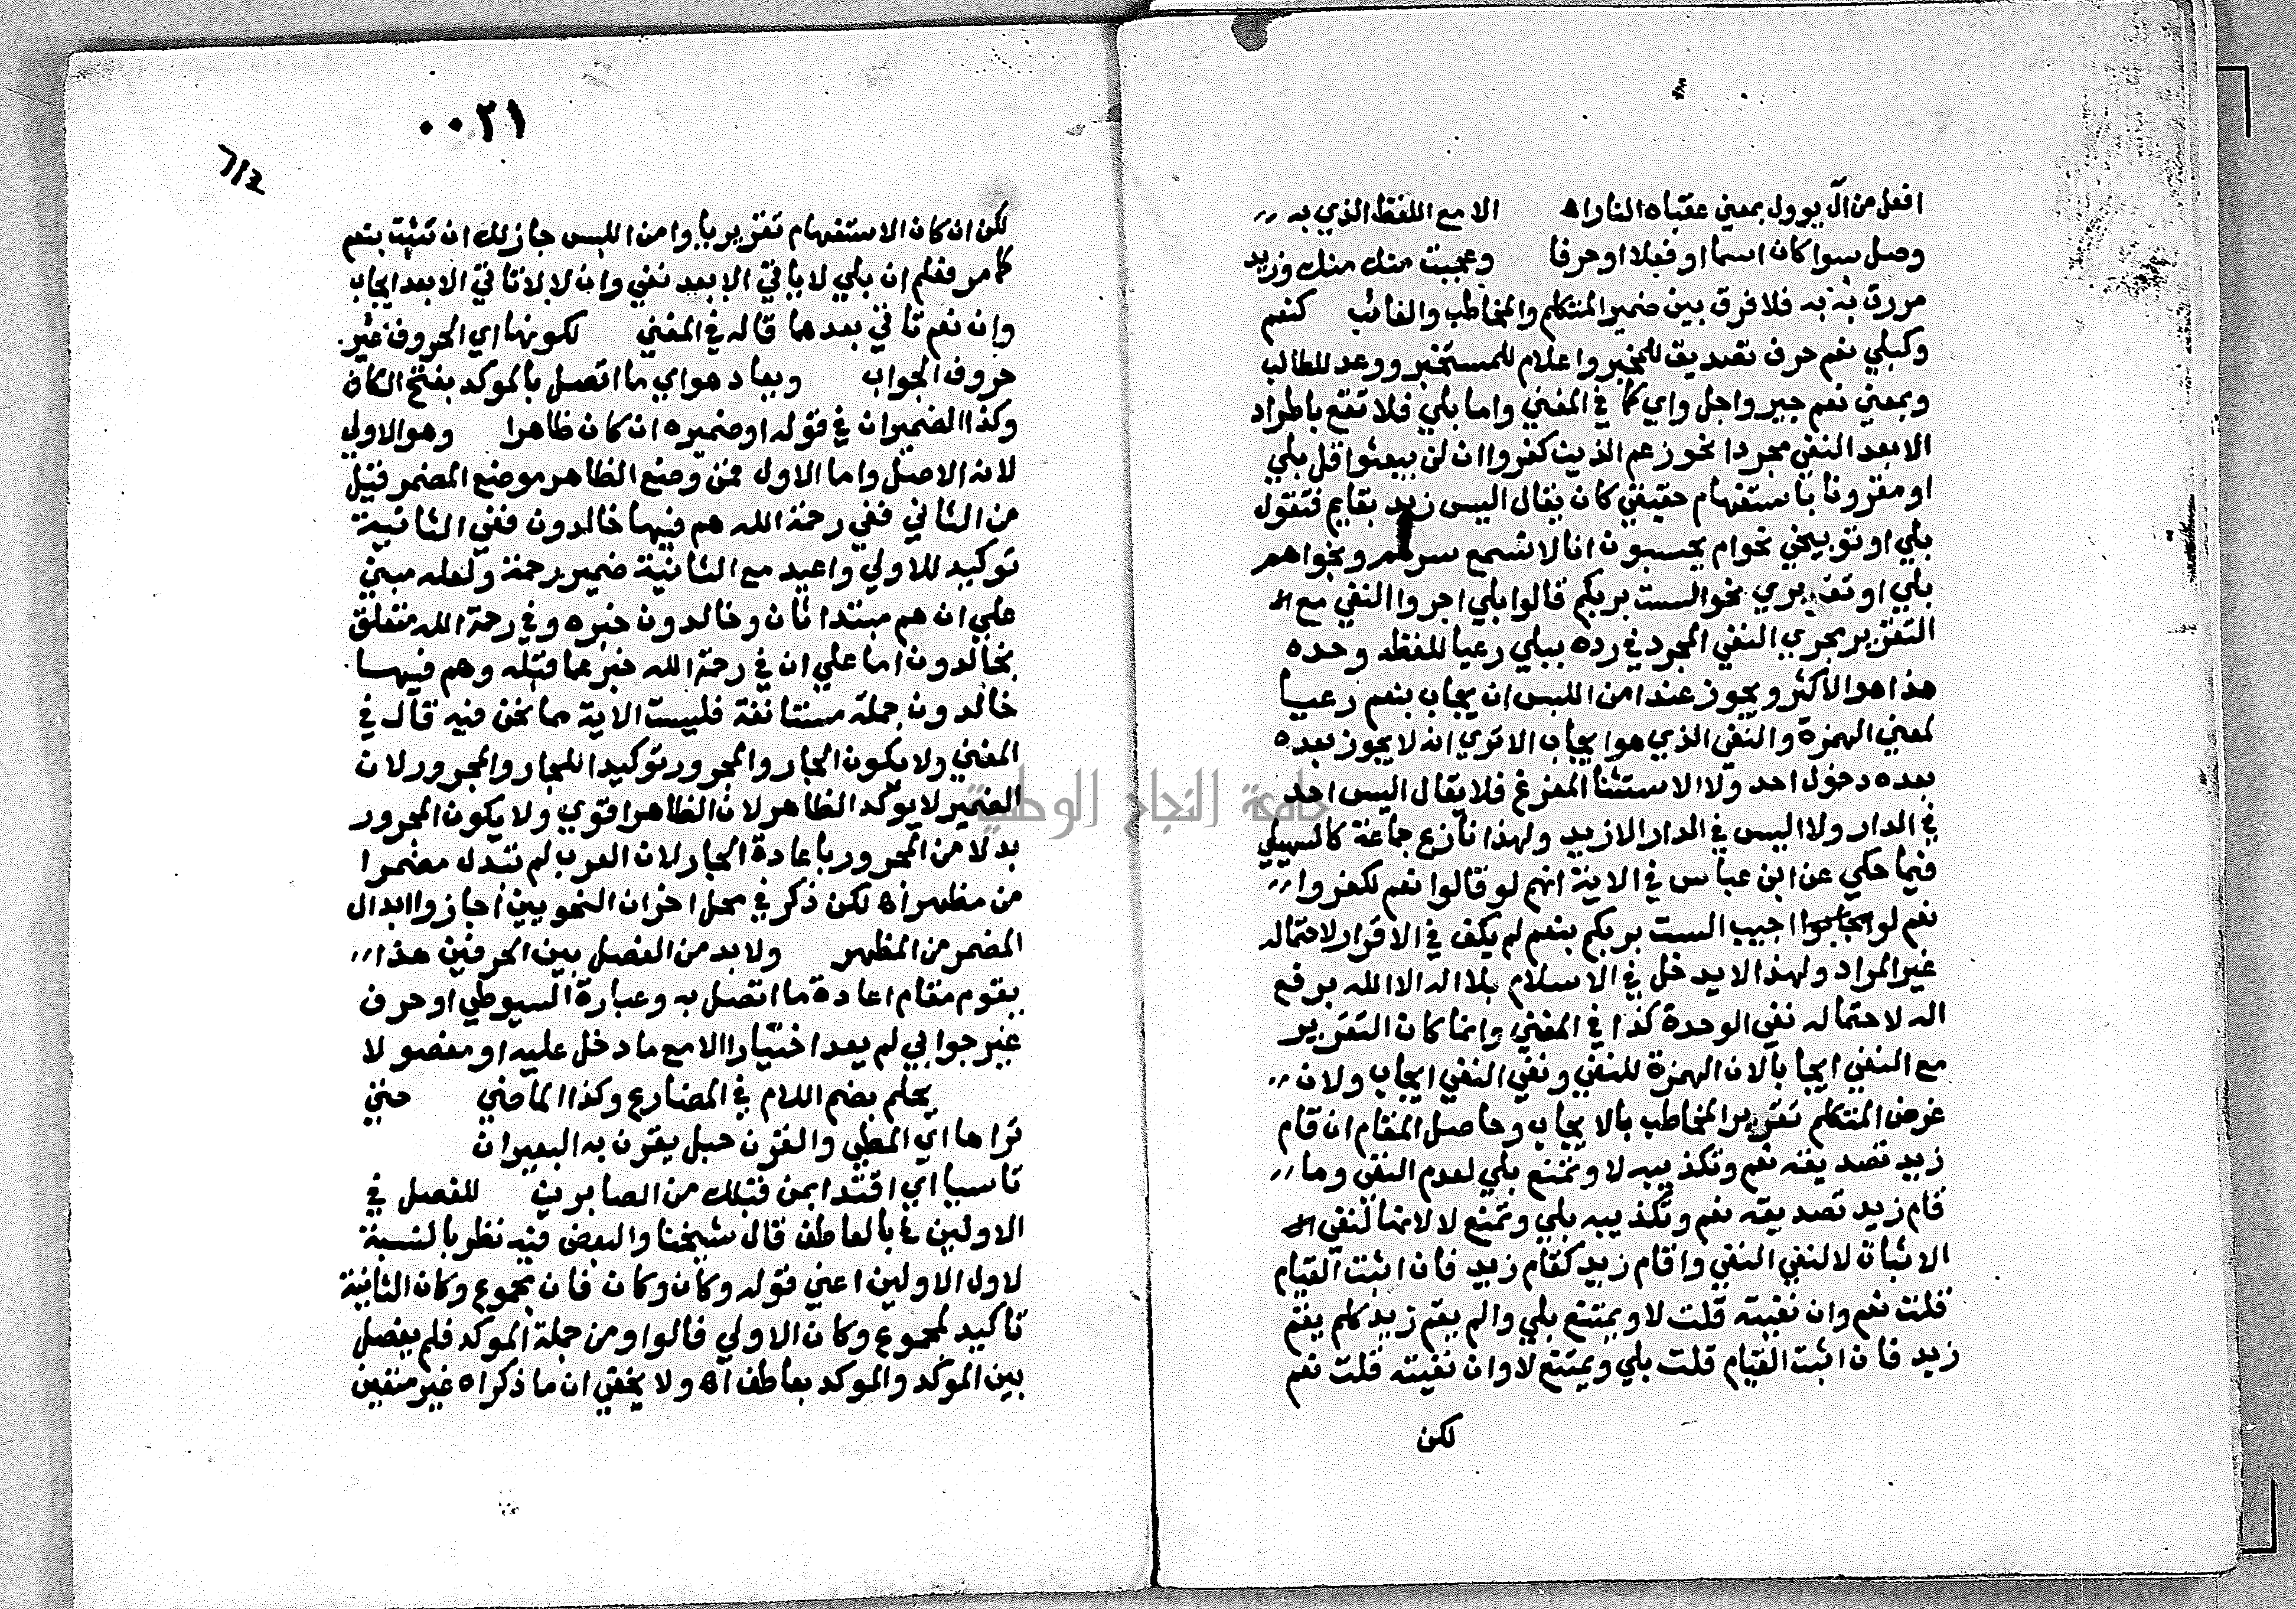 افعل من آل يوول بمعني عقباه النار اه الا مع اللفظ الذي به
وصل سوا كان اسما او فعلا او حرفا وعجبت منك منك وزيد
مررت به به فلا فرق بين ضمير المتكلم والمخاطب والغائب كنعم
وكبلي نعم حرف تصديق للمخبر واعلام للمستخبر ووعد للطالب
وبمعني نعم جير واجل واي كما في المغني واما بلي فلا تقع باطراد
الا بعد النفي مجردا نحو زعم الذين كفروا ان لن يبعثوا قل بلي
او مقرونا باستفهام حقيقي كان يقال اليس زيد بقايم فتقول
بلي او توبيخي نحو ام يحسبون انا لا نسمع سرهم ونجواهم
بلي او تقريري نحو الست بربكم قالوا بلي اجروا النفي مع
التقرير مجري النفي المجرد في رده ببلي رعيا للفظه وحده
هذا هو الاكثر ويجوز عند امن اللبس ان يجاب بنعم رعيا
لمعني الهمزة والنفي الذي هو ايجاب الا تري انه لا يجوز بعده
بعده دخول احد ولا الاستثنا المفرغ فلا يقال اليس احد
في الدار ولا اليس في الدار الا زيد ولهذا نازع جماعة كالسهيلي
فيما حكي عن ابن عباس في الاية انهم لو قالوا نعم لكفروا
نعم لو اجيب الست بربكم بنعم لم يكف في الاقرار لاحتماله
غير المراد ولهذا لا يدخل في الاسلام بلا اله الا الله برفع
اله لاحتماله نفي الوحدة كذا في المغني وانما كان التقرير
مع النفي ايجابا لان الهمزة للنفي ونفي النفي ايجاب ولان
غرض المتكلم تقرير المخاطب بالايجاب وحاصل المقام ان قام
زيد تصديقه نعم وتكذيبه لا وتمتنع بلي لعدم النفي وما
قام زيد تصديقه نعم وتكذيبه بلي وتمتنع لا لانها لنفي
الاثبات لا لنفي النفي واقام زيد كقام زيد فان اثبت القيام
قلت نعم وان نفيته قلت لا ويمتنع بلي والم يقم زيد كلم يقم
زيد فان اثبت القيام قلت بلي ويمتنع لا وان نفيته قلت نعم
لكن
٠٠٢١
لكن ان كان الاستفهام تقريريا وامن اللبس جاز لك ان تثبت بنعم
كما مر فعلم ان بلي لا ياتي الا بعد نفي وان لا لا تاتي الا بعد ايجاب
وان نعم تاتي بعدهما قاله في المغني لكونها اي الحروف غير
حروف الجواب ويعاد هو اي ما اتصل بالموكد بفتح الكاف
وكذا الضميران في قوله او ضميره ان كان ظاهرا وهو الاولي
لانه الاصل واما الاول فمن وضع الظاهر موضع المضمر قيل
من الثاني ففي رحمة الله هم فيها خالدون ففي الثانية
توكيد للاولي واعيد مع الثانية ضمير رحمة ولعله مبني
علي ان هم مبتدا ثان وخالدون خبره وفي رحمة الله متعلق
بخالدون اما علي ان في رحمة الله خبر عما قبله وهم فيها
خالدون جملة مستانفة فليست الاية مما نحن فيه قال في
المغني ولا يكون الجار والمجرور توكيدا للجار والمجرور لان
الضمير لا يوكد الظاهر لان الظاهر اقوي ولا يكون المجرور
بدلا من المجرور باعادة الجار لان العرب لم تبدل مضمرا
من مظهر اه لكن ذكر في محل اخر ان النحويين اجازوا ابدال
المضمر من المظهر ولا بد من الفصل بين الحرفين هذا
يقوم مقام اعادة ما اتصل به وعبارة السيوطي او حرف
غير جوابي لم يعد اختيارا الا مع ما دخل عليه او مفصولا
يحلم بضم اللام في المضارع وكذا الماضي حتي
تراها اي المطي والقرن حبل يقرن به البعيران
تاسيا اي اقتدا بمن قبلك من الصابرين للفصل في
الاولين بالعاطف قال شيخنا والبعض فيه نظر بالنسبة
لاول الاولين اعني قوله وكان وكان فان مجموع وكان الثانية
تاكيد لمجموع وكان الاولي فالواو من جملة الموكد فلم يفصل
بين الموكد والموكد بعاطف اه ولا يخفي ان ما ذكراه غير متعين
جامعة النجاح الوطنية